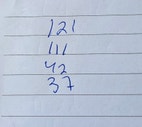 121
111
42
37